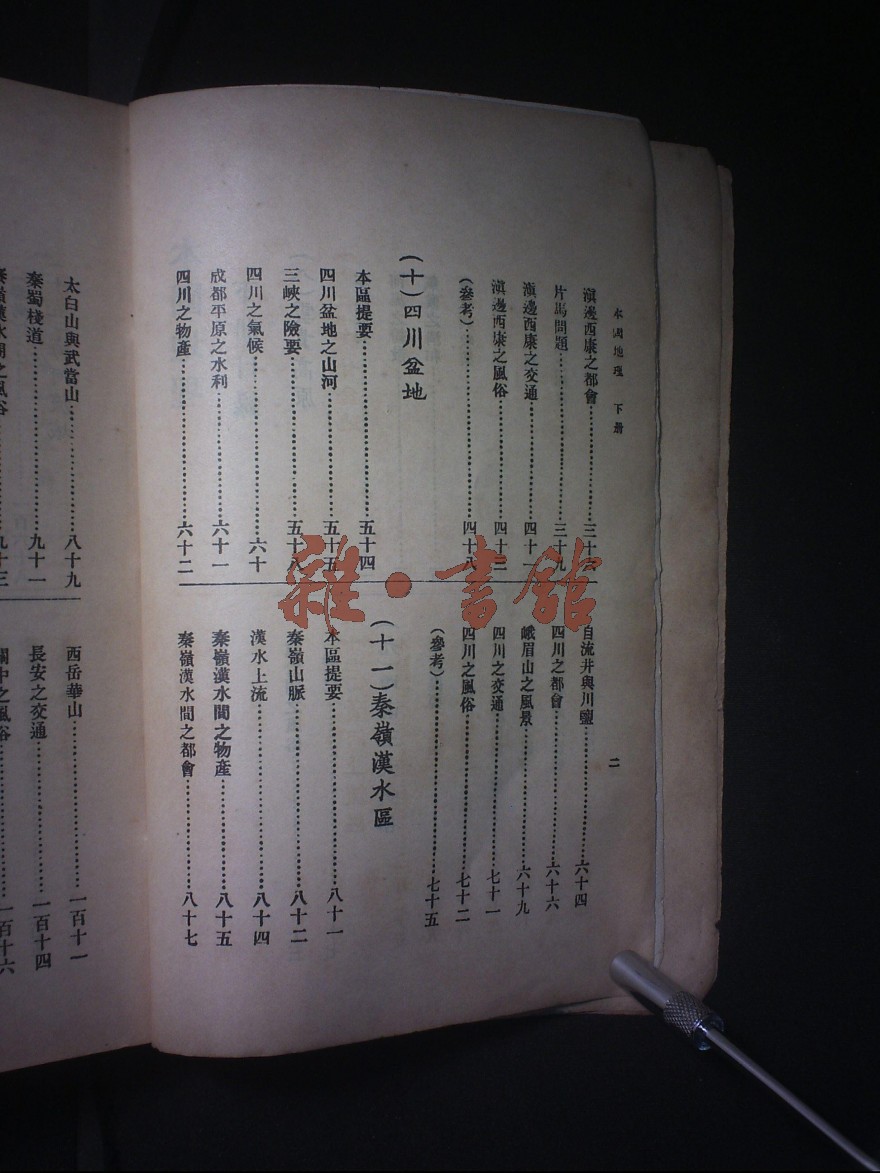 本國地理 下册
滇邊西康之都會……三十
片馬問題……三十九
滇邊西康之交通……四十一
滇邊西康之風俗……四十三
(參考)……四十八
(十)四川盆地
本區提要……五十四
四川盆地之山河……五十五
三峽之險要……五十八
四川之氣候……六十
成都平原之水利……六十一
四川之物產……六十二
自流井與川鹽……六十四
四川之都會……六十六
峨眉山之風景……六十九
四川之交通……七十一
四川之風俗……七十二
(參考)……七十五
(十一)秦嶺漢水區
本區提要……八十一
秦嶺山脈……八十二
漢水上流……八十四
秦嶺漢水間之物產……八十五
秦嶺漢水間之都會……八十七
二
太白山與武當山……八十九
秦蜀棧道……九十一
秦嶺漢水間之風俗……九十三
西岳華山……一百十一
長安之交通……一百十四
關中之風俗……一百十六
雜·書館